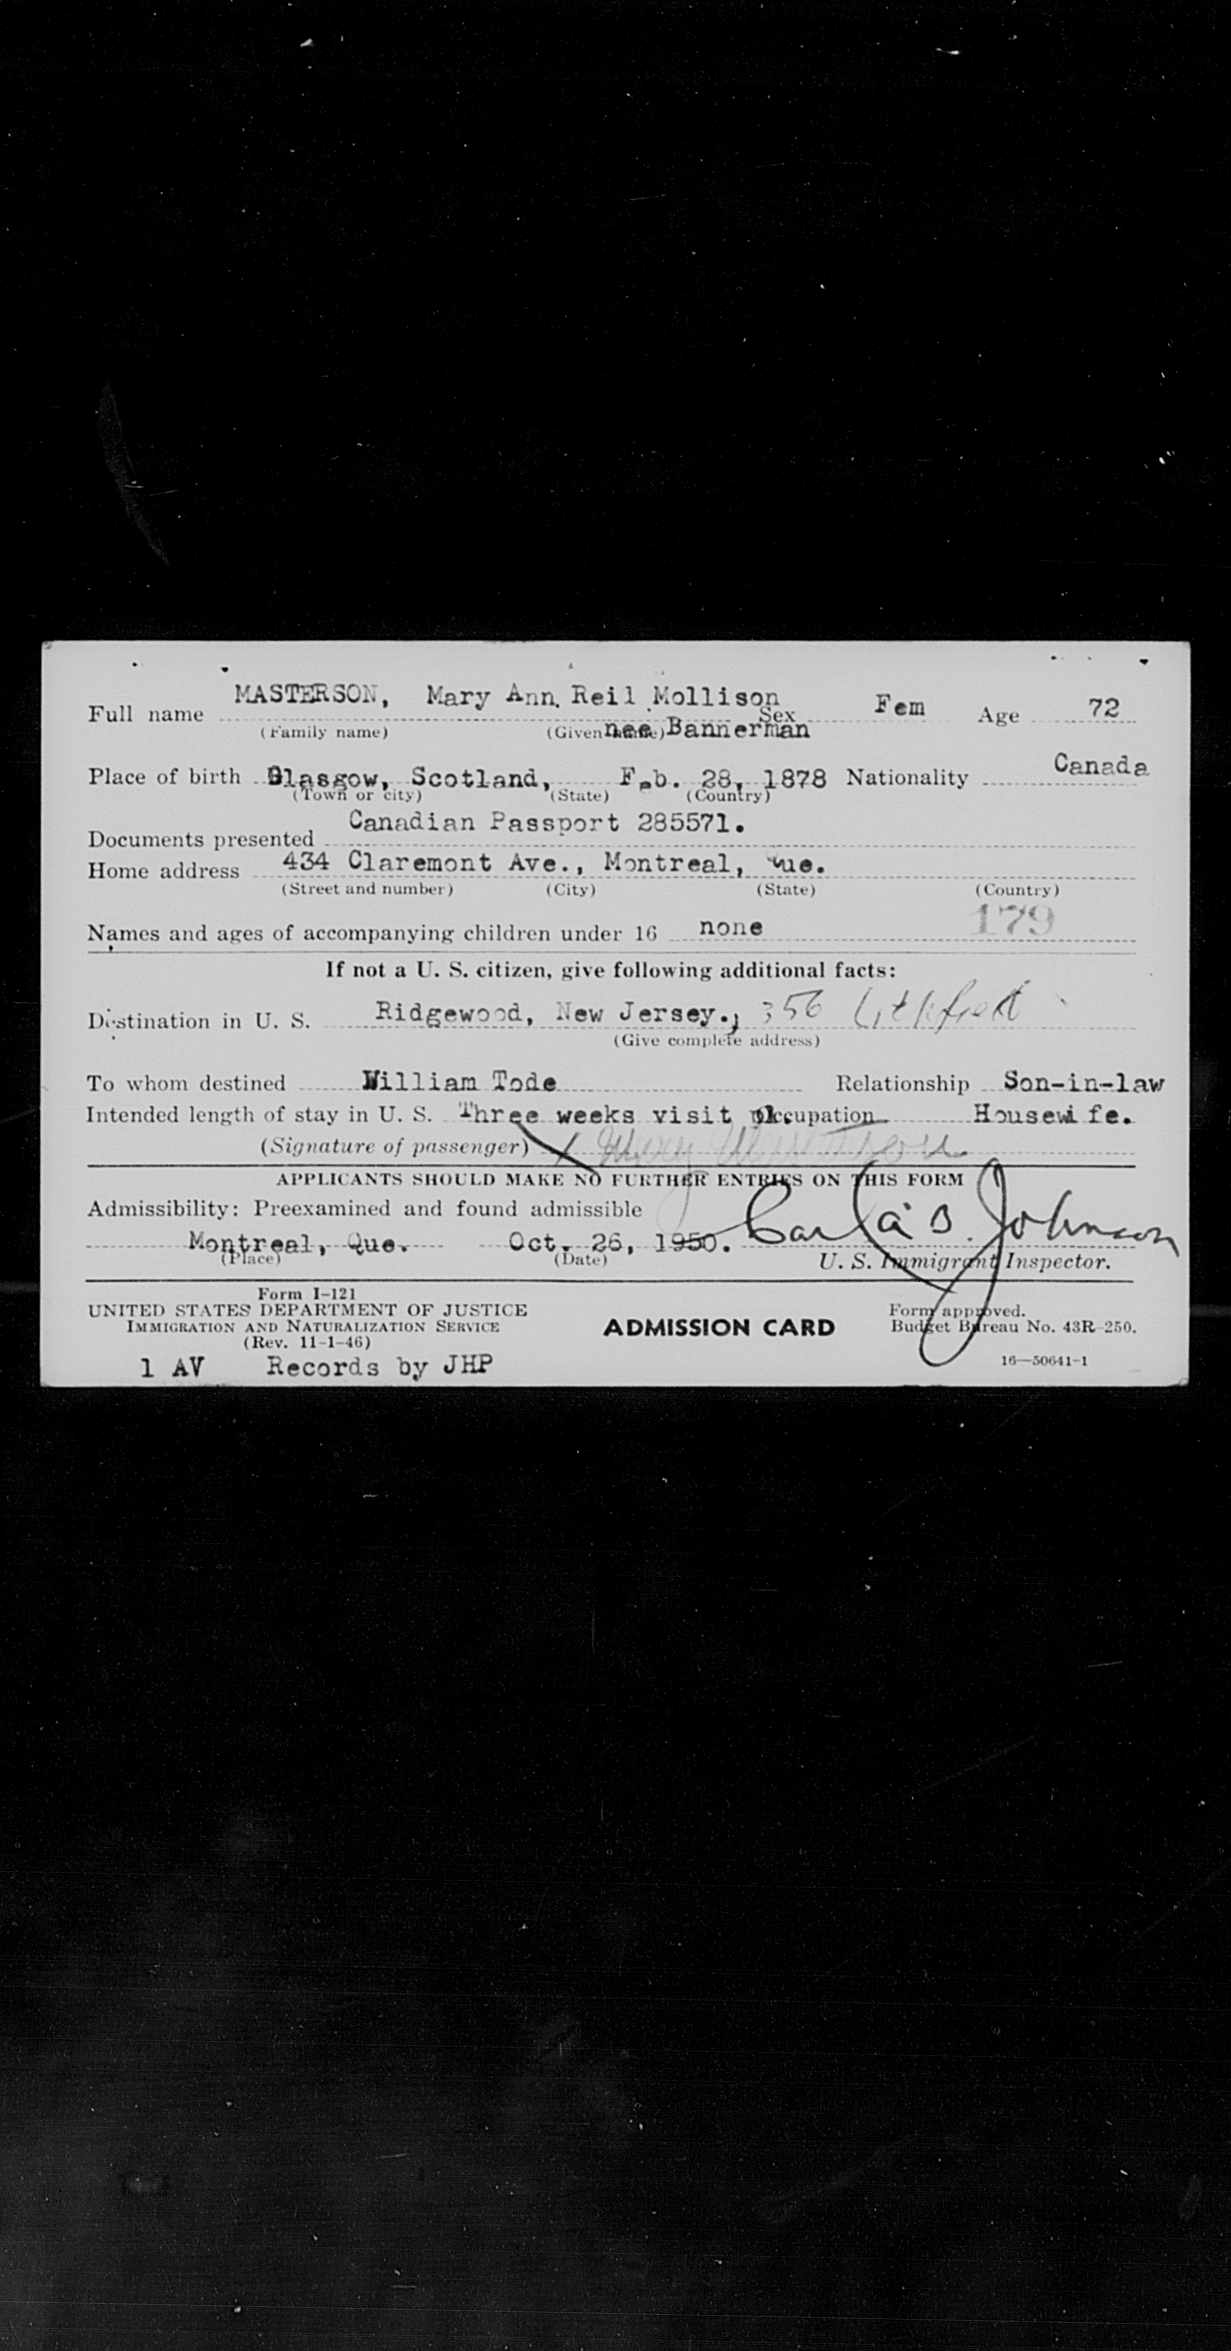 Full name MASTERSON, Mary Ann Reil Mollison Sex Fem Age 72
(Family name) (Given name) nee Bannerman
Place of birth Glasgow, Scotland, Feb. 28, 1878 Nationality Canada
(Town or city) (State) (Country)
Documents presented Canadian Passport 285571.
Home address 434 Claremont Ave., Montreal, Que.
(Street and number) (City) (State) (Country)
Names and ages of accompanying children under 16 none 179
If not a U. S. citizen, give following additional facts:
Destination in U. S. Ridgewood, New Jersey., 356
(Give complete address)
To whom destined William Tode Relationship Son-in-law
Intended length of stay in U. S. Three weeks visit Occupation Housewife.
(Signature of passenger) X Mary Masterson
APPLICANTS SHOULD MAKE NO FURTHER ENTRIES ON THIS FORM
Admissibility: Preexamined and found admissible
Montreal, Que. Oct. 26, 1950. Johnson
(Place) (Date) U. S. Immigrant Inspector.
Form I-121
UNITED STATES DEPARTMENT OF JUSTICE Form approved.
IMMIGRATION AND NATURALIZATION SERVICE ADMISSION CARD Budget Bureau No. 43R-250.
(Rev. 11-1-46)
1 AV Records by JHP 16—50641-1